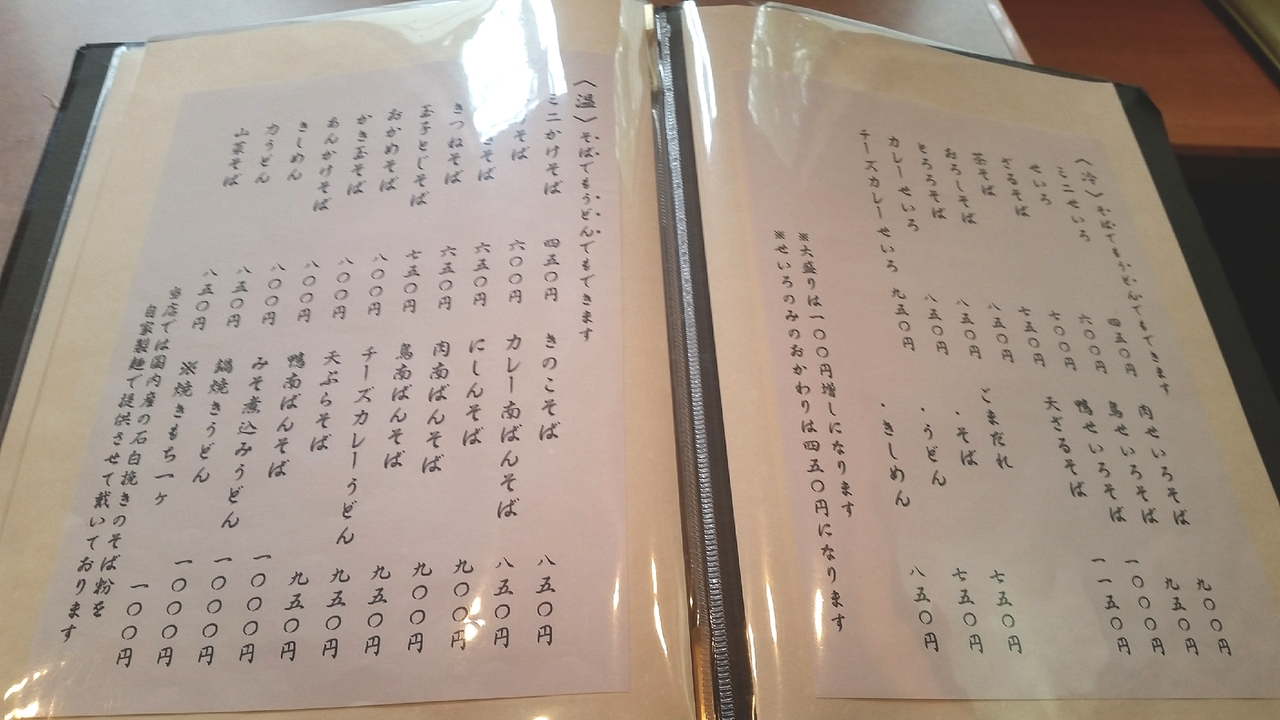 〈冷〉そばでもうどんでもできます
ミニせいろ 四五〇円
せいろ 六〇〇円
ざるそば 七〇〇円
茶そば 七五〇円
おろしそば 八五〇円
とろろそば 八五〇円
カレーせいろ 八五〇円
チーズカレーせいろ 九五〇円
肉せいろそば 九〇〇円
鳥せいろそば 九五〇円
鴨せいろそば 一〇〇〇円
天ざるそば 一一五〇円
ごまだれ
・そば 七五〇円
・うどん 七五〇円
・きしめん 八五〇円
※大盛りは一〇〇円増しになります
※せいろのみのおかわりは四五〇円になります
〈温〉そばでもうどんでもできます
ミニかけそば 四五〇円
そば 六〇〇円
そば 六五〇円
きつねそば 六五〇円
玉子とじそば 七五〇円
おかめそば 八〇〇円
かき玉そば 八〇〇円
あんかけそば 八〇〇円
きしめん 八〇〇円
力うどん 八五〇円
山菜そば 八五〇円
きのこそば 八五〇円
カレー南ばんそば 八五〇円
にしんそば 九〇〇円
肉南ばんそば 九〇〇円
鳥南ばんそば 九五〇円
チーズカレーうどん 九五〇円
天ぷらそば 九五〇円
鴨南ばんそば 一〇〇〇円
みそ煮込みうどん 一〇〇〇円
鍋焼きうどん 一〇〇〇円
※焼きもち一ヶ 一〇〇円
当店では国内産の石臼挽きのそば粉を
自家製麺で提供させて戴いております